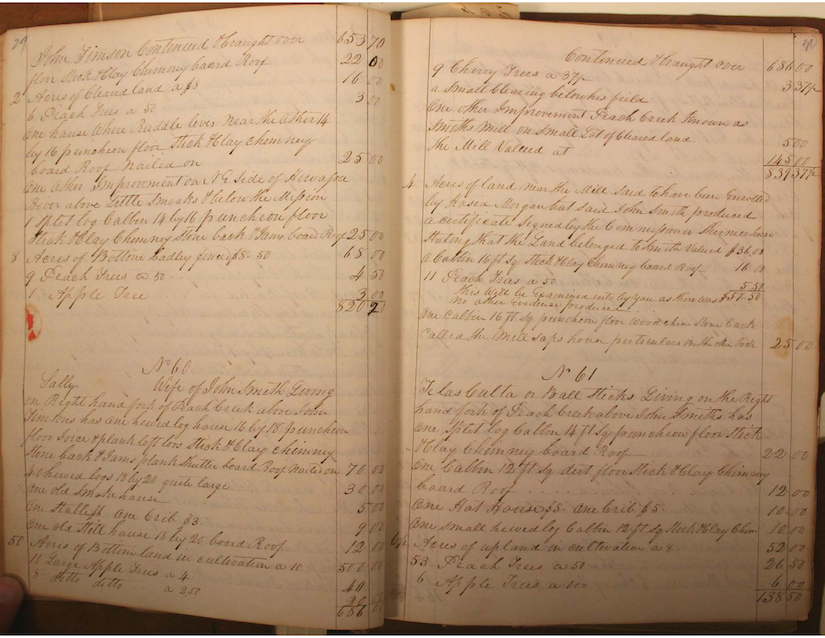 29
John Timson Continued & braught over 653 70
floor Stick & Clay Chimney board Roof 22 00
2 Acres of Cleared land a $8 16 00
6 Peach Trees a 50 3 00
One house Where Ruddle lives near the other 14
by 16 puncheon floor Stick & Clay Chimney
board Roof Nailed on 25 00
One other Improvement on N.E. side of
River above Little &below the Mission
1 Split log Cabbin 14 by 16 puncheon floor
Stick & Clay Chimney Stone back & Jams board Roof 25 00
8 Acres of Bottom badley fenced $8-50 68 00
9 Peach Trees a 50 4 50
1 Apple Tree 3 00
820 20
No 60
Sally Wife of John Smith Living
on Right hand fork of Peach Creek above John
Timsons has one hewed log house 16 by 18 puncheon
floor & plank loft Stick & Clay Chimney
Stone back & Jams plank Shutter board Roof Nailed on 70 00
hewed logs 18 by 20 quite large 30 00
One old Smoke house 5 00
One Stable One Crib $3 9 00
One old Still house 18 by 20 board Roof 12 00
50 Acres of Bottom land in cultivation a 10 500 00
10 Large Apple Trees a 4 40
8 ditto ditto a 250
686
Continued & braught over 686 00
9 Cherry Trees a 37½ 3 37½
a Small Clearing below his field
One other Improvement Peach Creek Known as
Smiths Mill on Small Lot of Cleared land 5 00
The Mill Valued at 145 00
839 37½
4 Acres of land near the Mill Said to have been Enrolled
by Morgan but said John Smith produced
a certificate Signed by the Commissioner
Stating that the Land belonged to Smith Valued $36.00
a Cabbin 16 ft sq Stick & Clay Chimney board Roof 16 00
11 Peach Trees a 50 5 50
This Will be Examined into by you as there was $57.50
no other Evidence produced
One Cabbin 16 ft sq puncheon floor Wood Chim Stone back
Called the Mill house particulars in the Book 25 00
No 61
Telas Culta or Ball Sticks Living on the Right
hand fork of Peach Creek above John Smiths has
one Split log Cabbin 14 ft sq puncheon floor Stick
& Clay Chimney board Roof 22 00
One Cabbin 12 ft sq dirt floor Stick & Clay Chimney
board Roof 12 00
One Hot House $5 One Crib $5 10 00
One Small hewed log Cabbin 12 ft sq Stick & Clay Chim 10 00
6½ Acres of upland in cultivation a 8 52 00
53 Peach Trees a 50 26 50
6 Apple Trees a 100 6 00
138 50